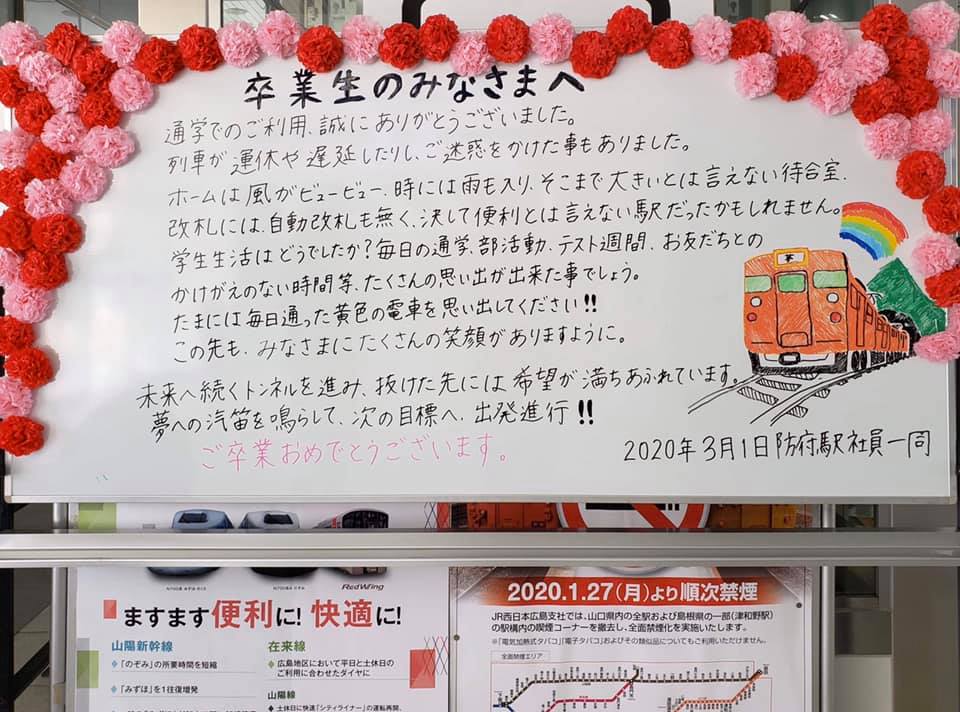 卒業生のみなさまへ
通学でのご利用、誠にありがとうございました。
列車が運休や遅延したりし、ご迷惑をかけた事もありました。
ホームは風がビュービュー、時には雨も入り、そこまで大きいとは言えない待合室、
改札には、自動改札も無く、決して便利とは言えない駅だったかもしれません。
学生生活はどうでしたか?毎日の通学、部活動、テスト週間、お友だちとの
かけがえのない時間等、たくさんの思い出が出来た事でしょう。
たまには毎日通った黄色の電車を思い出してください!!
この先も、みなさまにたくさんの笑顔がありますように。
未来へ続くトンネルを進み、抜けた先には希望が満ちあふれています。
夢への汽笛を鳴らして、次の目標へ、出発進行!!
ご卒業おめでとうございます。
2020年3月1日防府駅社員一同
RedWing
ますます便利に!快適に!
山陽新幹線
◆「のぞみ」の所要時間を短縮
◆「みずほ」を1往復増発
在来線
◆広島地区において平日と土休日の
ご利用に合わせたダイヤに
山陽線
◆土休日に快速「シティライナー」の運転再開、
2020.1.27(月)より順次禁煙
JR西日本広島支社では、山口県内の全駅および島根県の一部(津和野駅)
の駅構内の喫煙コーナーを撤去し、全面禁煙化を実施いたします。
※「電気加熱式タバコ」「電子タバコ」およびその類似品についてもご利用いただけません。
全面禁煙エリア